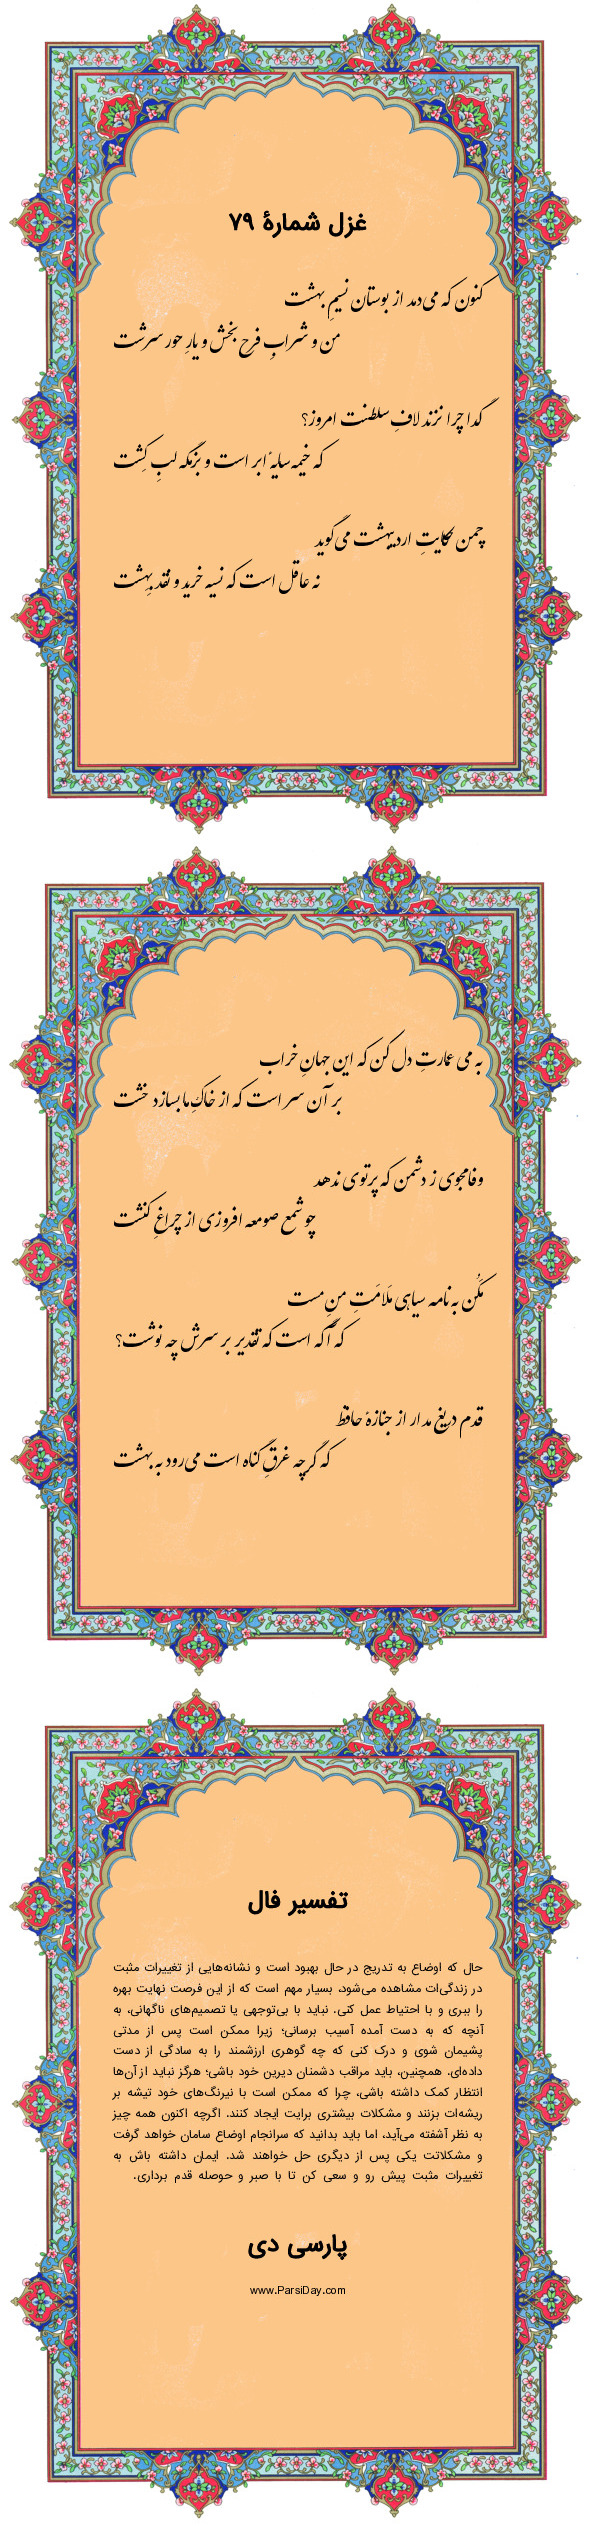 غزل شمارهٔ ۷۹
کنون که می‌دمد از بوستان نسیمِ بهشت
من و شرابِ فرح بخش و یارِ حور سرشت
گدا چرا نزند لافِ سلطنت امروز؟
که خیمه سایهٔ ابر است و بزمگه لبِ کِشت
چمن حکایتِ اردیبهشت می‌گوید
نه عاقل است که نسیه خرید و نقد بِهِشت
به می عمارتِ دل کن که این جهانِ خراب
بر آن سر است که از خاکِ ما بسازد خشت
وفا مجوی ز دشمن که پرتوی ندهد
چو شمع صومعه افروزی از چراغِ کنشت
مَکُن به نامه سیاهی مَلامَتِ منِ مست
که آگه است که تقدیر بر سرش چه نوشت؟
قدم دریغ مدار از جنازهٔ حافظ
که گرچه غرقِ گناه است می‌رود به بهشت
تفسیر فال
حال که اوضاع به تدریج در حال بهبود است و نشانه‌هایی از تغییرات مثبت
در زندگی‌ات مشاهده می‌شود، بسیار مهم است که از این فرصت نهایت بهره
را ببری و با احتیاط عمل کنی. نباید با بی‌توجهی یا تصمیم‌های ناگهانی، به
آنچه که به دست آمده آسیب برسانی؛ زیرا ممکن است پس از مدتی
پشیمان شوی و درک کنی که چه گوهری ارزشمند را به سادگی از دست
داده‌ای. همچنین، باید مراقب دشمنان دیرین خود باشی؛ هرگز نباید از آن‌ها
انتظار کمک داشته باشی، چرا که ممکن است با نیرنگ‌های خود تیشه بر
ریشه‌ات بزنند و مشکلات بیشتری برایت ایجاد کنند. اگرچه اکنون همه چیز
به نظر آشفته می‌آید، اما باید بدانید که سرانجام اوضاع سامان خواهد گرفت
و مشکلاتت یکی پس از دیگری حل خواهند شد. ایمان داشته باش به
تغییرات مثبت پیش رو و سعی کن تا با صبر و حوصله قدم برداری.
پارسی دی
www.ParsiDay.com